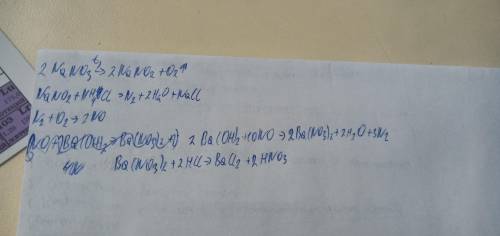 2 NaNO3 t→ 2NaNO2 + O2↑
NaNO2 + NH4Cl → N2 + 2H2O + NaCl
N2 + O2 → 2NO
2 Ba(OH)2 + 10NO → 2Ba(NO2)2 + 2H2O + 3N2
Ba(NO3)2 + 2HCl → BaCl2 + 2HNO3